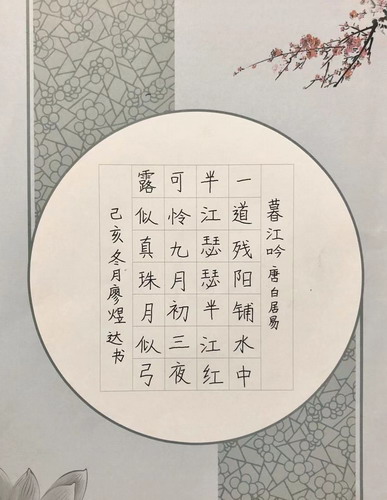 暮江吟 唐 白居易
一道残阳铺水中
半江瑟瑟半江红
可怜九月初三夜
露似真珠月似弓
己亥冬月廖煜达书